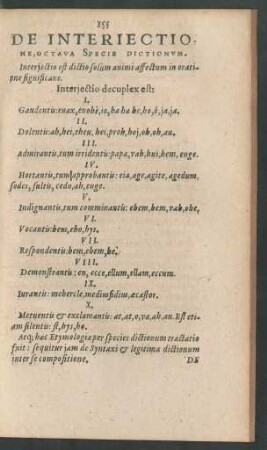 155
DE INTERIECTIO-
NE, OCTAVA SPECIE DICTIONVM.
Interjectio est dictio solùm animi affectum in orati-
one significans.
Interjectio decuplex est:
I.
Gaudentis: euax, euohè, io, ha ha he, ho, ô, ja, ja.
II.
Dolentis: ah, hei, eheu, hei, proh, hoj, oh, oh, au.
III.
Admirantis, tum irridentis: papæ, vah, hui, hem, euge.
IV.
Hortantis, tum approbantis: eia, age, agite, agedum,
sodes, sultis, cedo, ah, euge.
V.
Indignantis, tum comminantis: ehem, hem, vah, ohe,
VI.
Vocantis: hem, eho, hys.
VII.
Respondentis: hem, ehem, he.
VIII.
Demonstrantis: en, ecce, ellum, ellam, eccum.
IX.
Iurantis: mehercle, mediusfidius, æcastor.
X.
Metuentis & exclamantis: at, at, o, va, ah, au. Est et-
iam silentis: st, hys, ho.
Atq; hæc Etymologia per species dictionum tractatio
fuit: sequitur jam de Syntaxi & legitima dictionum
inter se compositione.
DE